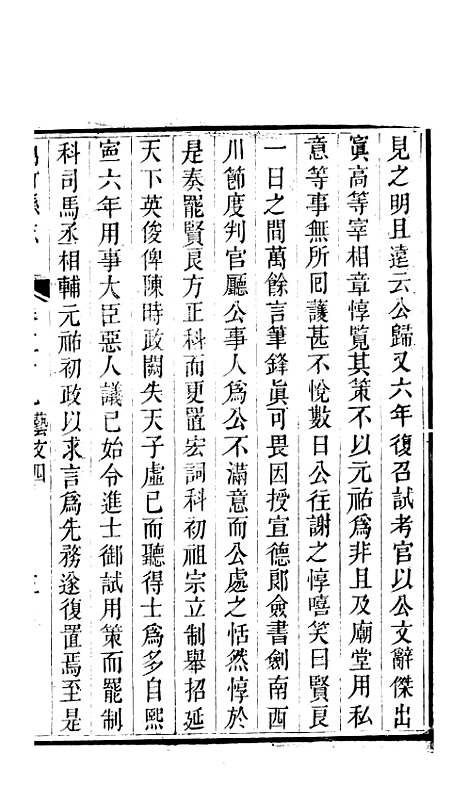 見之明且遠云公歸又六年復召試考官以公文辭傑出
寘高等宰相章惇覧其策不以元祐爲非且及廟堂用私
意等事無所囘護甚不悅數日公往謝之惇嘻笑曰賢良
一日之間萬餘言筆鋒眞可畏因授宣德郎僉書劍南西
川節度判官廳公事人爲公不滿意而公處之恬然惇於
是奏罷賢良方正科而更置宏詞科初祖宗立制舉招延
天下英俊俾陳時政闕失天子虛已而聽得士爲多自熙
寍六年用事大臣惡人議已始令進士御試用策而罷制
科司馬丞相輔元祐初政以求言爲先務遂復置焉至是
藝文四